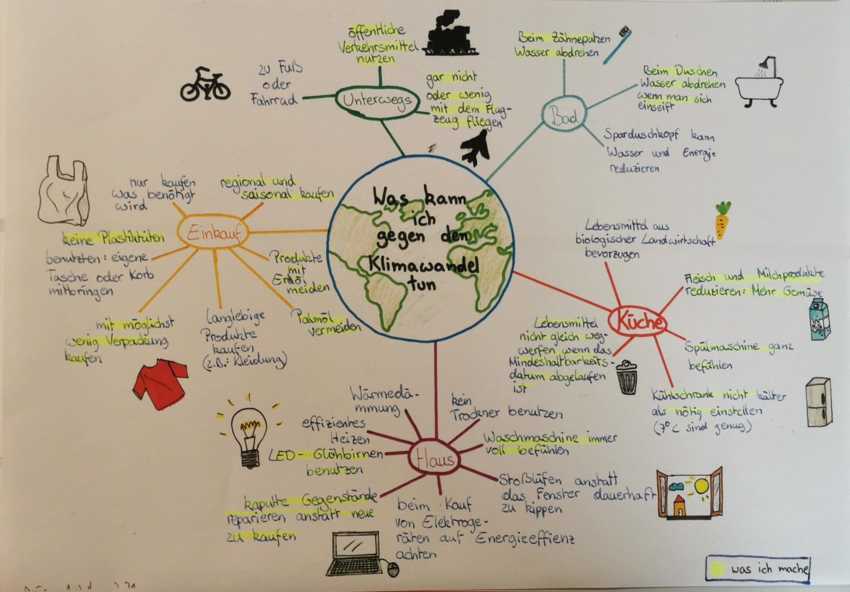 Was kann
ich
gegen den
Klimawandel
tun
Unterwegs
zu Fuß
oder
Fahrrad
öffentliche
Verkehrsmittel
nutzen
gar nicht
oder wenig
mit dem Flug-
zeug fliegen
Bad
Beim Zähneputzen
Wasser abdrehen
Beim Duschen
Wasser abdrehen
wenn man sich
einseift
Sparduschkopf kann
Wasser und Energie
reduzieren
Küche
Lebensmittel aus
biologischer Landwirtschaft
bevorzugen
Fleisch und Milchprodukte
reduzieren: Mehr Gemüse
Spülmaschine ganz
befühlen
Kühlschrank nicht kälter
als nötig einstellen
(7°C sind genug)
Lebensmittel
nicht gleich weg-
werfen wenn das
Mindeshaltbarkeits-
datum abgelaufen
ist
Haus
kein
Trockner benutzen
Waschmaschine immer
voll befühlen
Stoßlüfen anstatt
das Fenster dauerhaft
zu kippen
beim Kauf
von Elektroge-
räten auf Energieeffienz
achten
kaputte Gegenstände
reparieren anstatt neue
zu kaufen
LED-Glühbirnen
benutzen
effizientes
Heizen
Wärmedä-
mmung
Einkauf
nur kaufen
was benötigt
wird
regional und
saisonal kaufen
keine Plastiktüten
benutzten: eigene
Tasche oder Korb
mitbringen
mit möglichst
wenig Verpackung
kaufen
Langlebige
Produkte
kaufen
(z.B.: Kleidung)
Palmöl
vermeiden
Produkte
mit
meiden
was ich mache